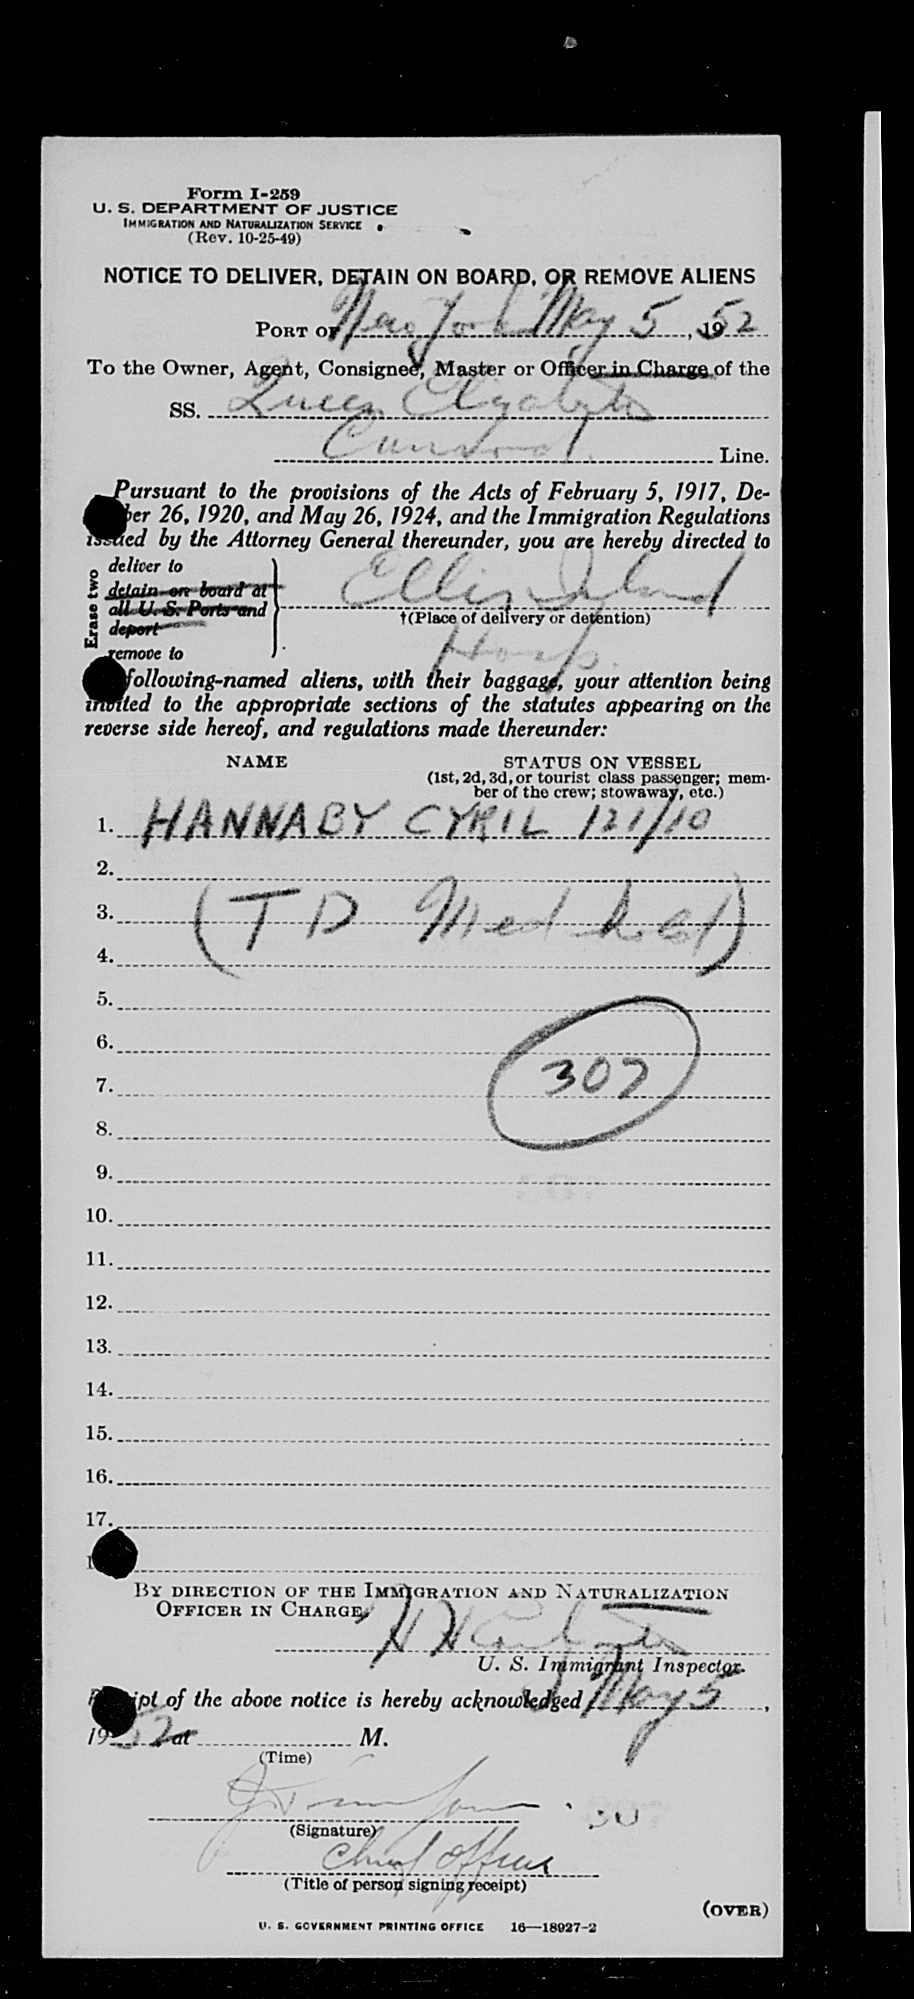 Form I-259
U. S. DEPARTMENT OF JUSTICE
IMMIGRATION AND NATURALIZATION SERVICE
(Rev. 10-25-49)
NOTICE TO DELIVER, DETAIN ON BOARD, OR REMOVE ALIENS
PORT OF New York May 5, 1952
To the Owner, Agent, Consignee, Master or Officer in Charge of the
SS. Queen Elizabeth
Cunard Line.
Pursuant to the provisions of the Acts of February 5, 1917, De-
ber 26, 1920, and May 26, 1924, and the Immigration Regulations
issued by the Attorney General thereunder, you are hereby directed to
Erase two
deliver to
detain on board at
all U. S. Ports and
deport
remove to
Ellis Island
†(Place of delivery or detention)
Hosp.
following-named aliens, with their baggage, your attention being
invited to the appropriate sections of the statutes appearing on the
reverse side hereof, and regulations made thereunder:
NAME STATUS ON VESSEL
(1st, 2d, 3d, or tourist class passenger; mem-
ber of the crew; stowaway, etc.)
1. HANNABY CYRIL 121/10
2.
3. (TD Med hold)
4.
5.
6.
307
7.
8.
9.
10.
11.
12.
13.
14.
15.
16.
17.
1
BY DIRECTION OF THE IMMIGRATION AND NATURALIZATION
OFFICER IN CHARGE,
U. S. Immigrant Inspector.
Receipt of the above notice is hereby acknowledged May 5,
1952 at M.
(Time)
(Signature)
Chief Officer
(Title of person signing receipt)
(OVER)
U. S. GOVERNMENT PRINTING OFFICE 16—18927-2